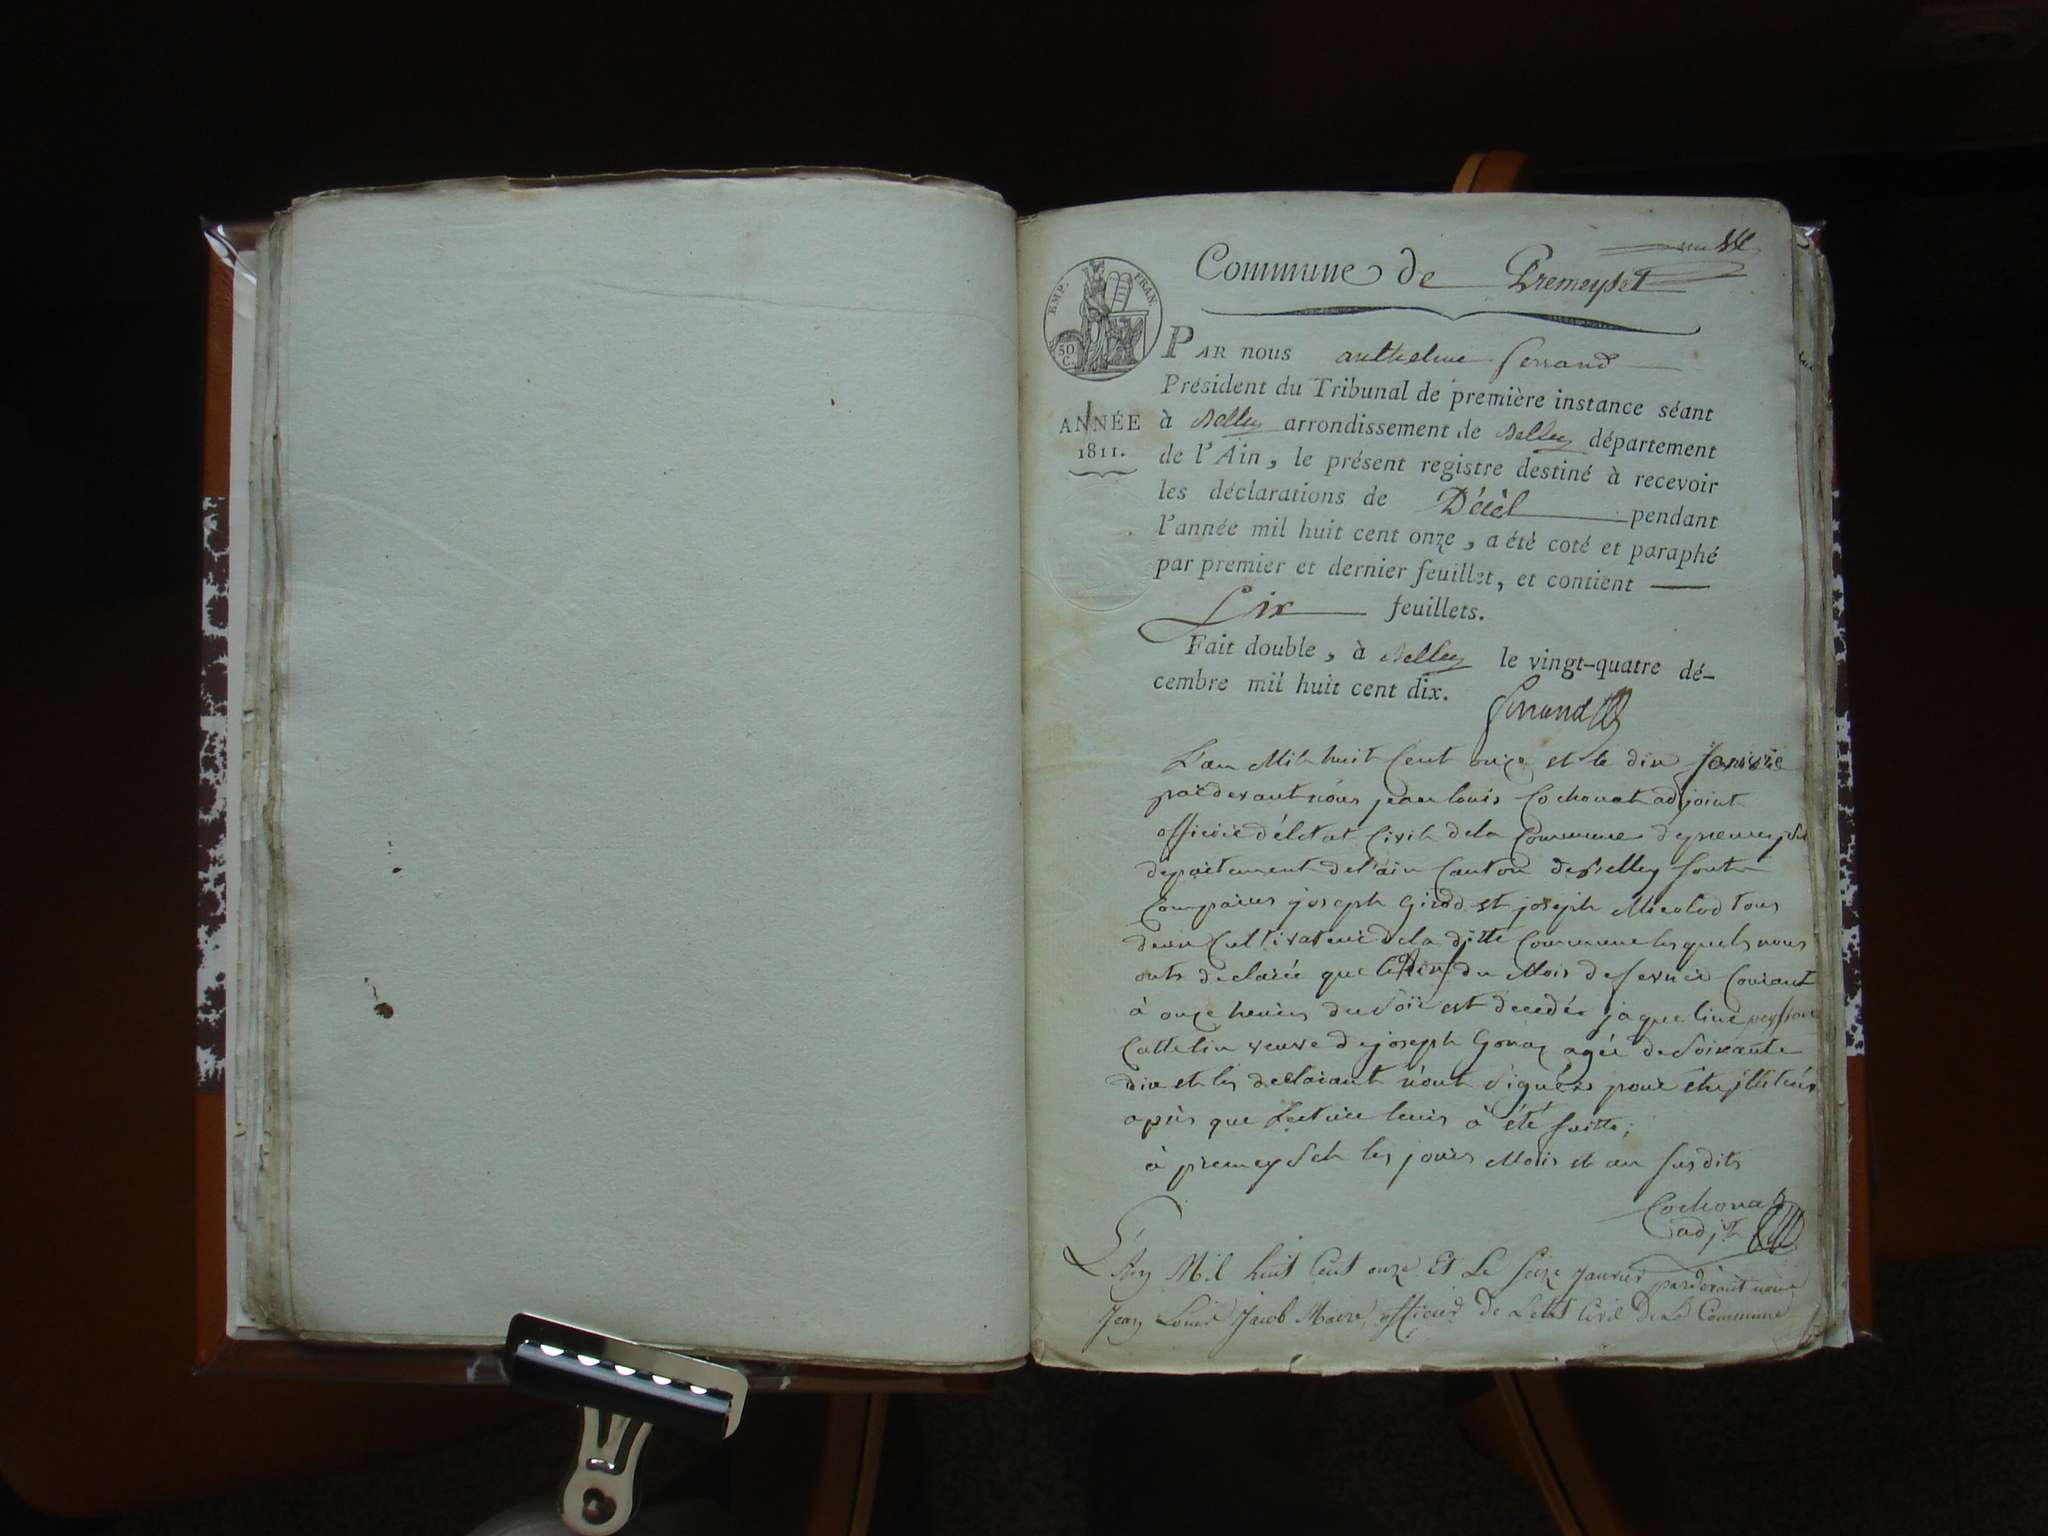 Commune de Premeysel
EMP. FRAN.
50 C.
PAR nous anthelme ferrand
Président du Tribunal de première instance séant
ANNÉE
1811.
à Belley arrondissement de Belley département
de l'Ain, le présent registre destiné à recevoir
les déclarations de Décès pendant
l'année mil huit cent onze, a été coté et paraphé
par premier et dernier feuillet, et contient
Six feuillets.
Fait double, à Belley le vingt-quatre dé-
cembre mil huit cent dix.
ferrand
L'an Mil huit Cent onze et le dix
pardevant nous jean louis Cochonat adjoint
officié d'életat Civil dela Commune de
departement de l'ain Canton de Belley sont
Comparus joseph Girod et joseph tous
deux Cultivateur dela ditte Commune lesquels nous
onts declarée que le du Mois de Courant
à onze heures du soir est decedée jaqueline
Cattelin veuve de joseph Gonaz agée de soixante
dix et les declarant n'ont signéz pour
après que Lecture leurs à été faitte;
à les jours Mois et an susdits
Cochonat
adjt
L'An Mil huit Cent onze Et Le Seize Janvier pardevant nous
Jean Louis Jacob Maire, officier de Letat Civil De La Commune